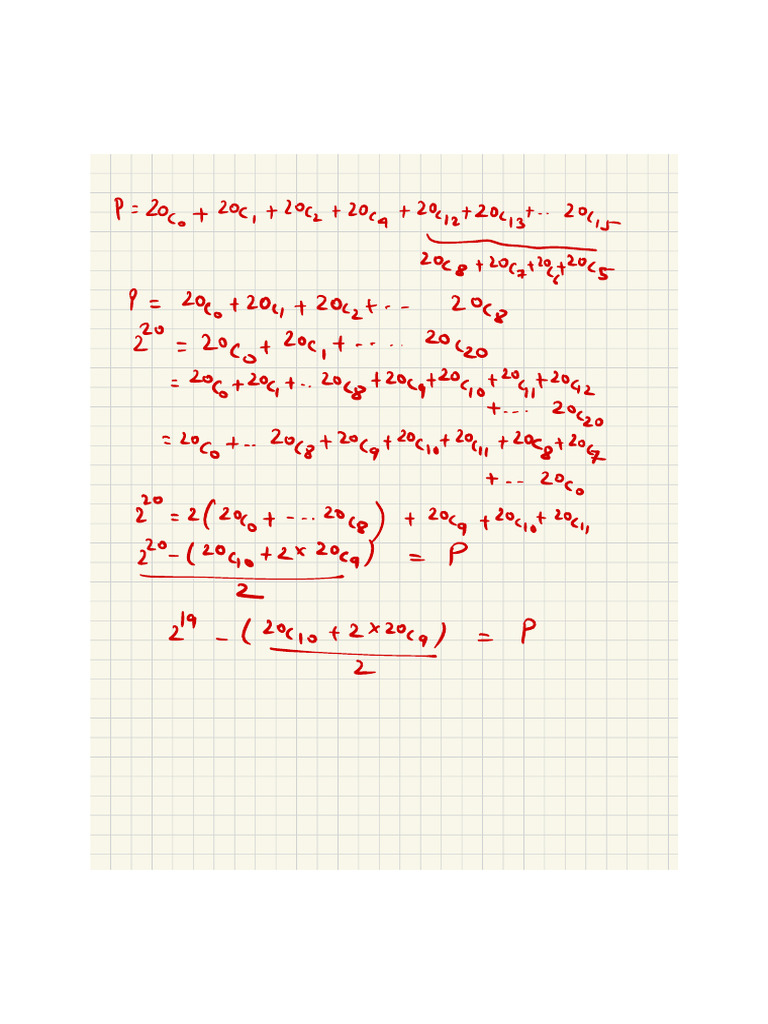 P = 20C₀ + 20C₁ + 20C₂ + 20C₄ + 20C₁₂ + 20C₁₃ + ... 20C₁₅
20C₈ + 20C₇ + 20C₆ + 20C₅
P = 20C₀ + 20C₁ + 20C₂ + ... 20C₈
2²⁰ = 20C₀ + 20C₁ + .... 20C₂₀
= 20C₀ + 20C₁ + ... 20C₈ + 20C₉ + 20C₁₀ + 20C₁₁ + 20C₁₂
+ ... 20C₂₀
= 20C₀ + ... 20C₈ + 20C₉ + 20C₁₀ + 20C₁₁ + 20C₈ + 20C₇
+ ... 20C₀
2²⁰ = 2 ( 20C₀ + ... 20C₈ ) + 20C₉ + 20C₁₀ + 20C₁₁
2²⁰ - ( 20C₁₀ + 2 × 20C₉ ) = P
2
2¹⁹ - ( 20C₁₀ + 2 × 20C₉ ) = P
2